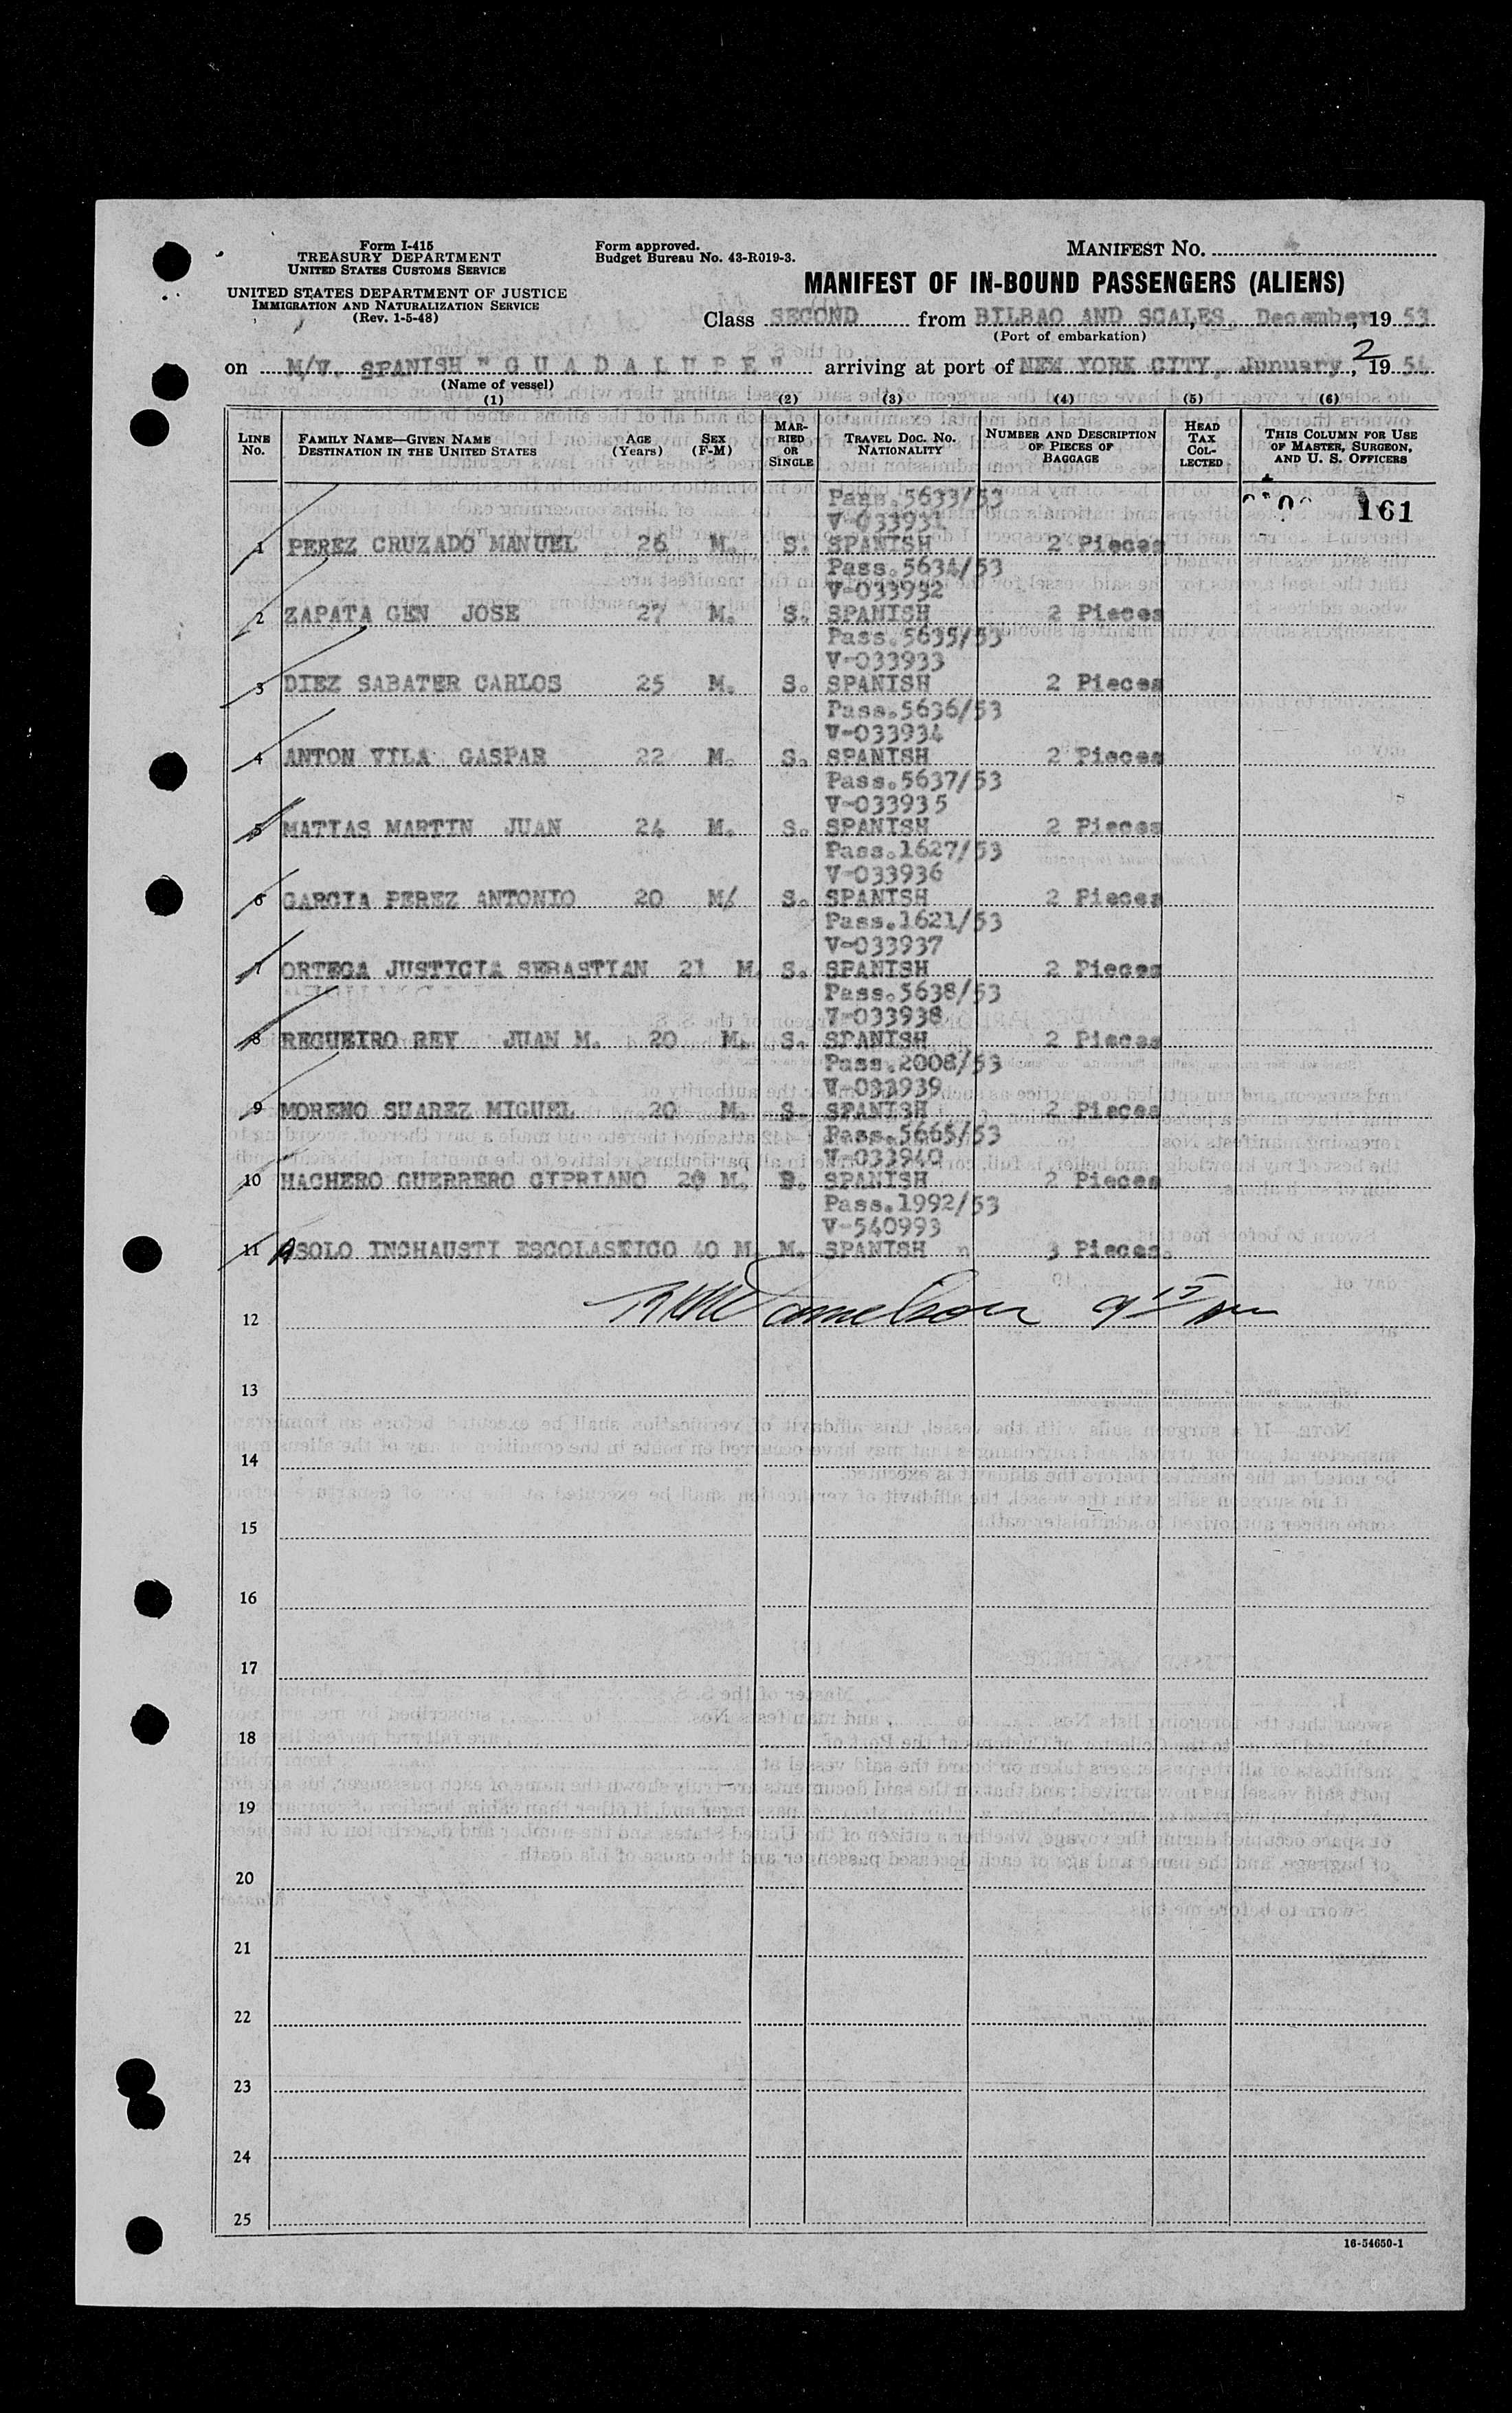 Form I-415
TREASURY DEPARTMENT
UNITED STATES CUSTOMS SERVICE
UNITED STATES DEPARTMENT OF JUSTICE
IMMIGRATION AND NATURALIZATION SERVICE
(Rev. 1-5-48)
Form approved.
Budget Bureau No. 43-R019-3.
MANIFEST NO.
MANIFEST OF IN-BOUND PASSENGERS (ALIENS)
Class SECOND from BILBAO AND SCALES, December, 19 53
(Port of embarkation)
on M/V. SPANISH "G U A D A L U P E" arriving at port of NEW YORK CITY, January 2, 19 54
(Name of vessel)
(1) (2) (3) (4) (5) (6)
LINE NO. FAMILY NAME—GIVEN NAME DESTINATION IN THE UNITED STATES AGE (Years) SEX (F-M) MARRIED OR SINGLE TRAVEL DOC. NO. NATIONALITY NUMBER AND DESCRIPTION OF PIECES OF BAGGAGE HEAD TAX COLLECTED THIS COLUMN FOR USE OF MASTER, SURGEON, AND U. S. OFFICERS
Pass.5633/53
161
V-033931
1 PEREZ CRUZADO MANUEL 26 M. S. SPANISH 2 Pieces
Pass.5634/53
V-033932
2 ZAPATA GEN JOSE 27 M. S. SPANISH 2 Pieces
Pass.5635/53
V-033933
3 DIEZ SABATER CARLOS 25 M. S. SPANISH 2 Pieces
Pass.5636/53
V-033934
4 ANTON VILA GASPAR 22 M. S. SPANISH 2 Pieces
Pass.5637/53
V-033935
5 MATIAS MARTIN JUAN 24 M. S. SPANISH 2 Pieces
Pass.1627/53
V-033936
6 GARCIA PEREZ ANTONIO 20 M/ S. SPANISH 2 Pieces
Pass.1621/53
V-033937
7 ORTEGA JUSTICIA SEBASTIAN 21 M. S. SPANISH 2 Pieces
Pass.5638/53
V-033938
8 REGUEIRO REY JUAN M. 20 M. S. SPANISH 2 Pieces
Pass.2008/53
V-033939
9 MORENO SUAREZ MIGUEL 20 M. S. SPANISH 2 Pieces
Pass.5665/53
V-033940
10 HACHERO GUERRERO CIPRIANO 20 M. S. SPANISH 2 Pieces
Pass.1992/53
V-540993
11 ASOLO INCHAUSTI ESCOLASTICO 40 M. M. SPANISH n 3 Pieces.
12
13
14
15
16
17
18
19
20
21
22
23
24
25
16-54650-1